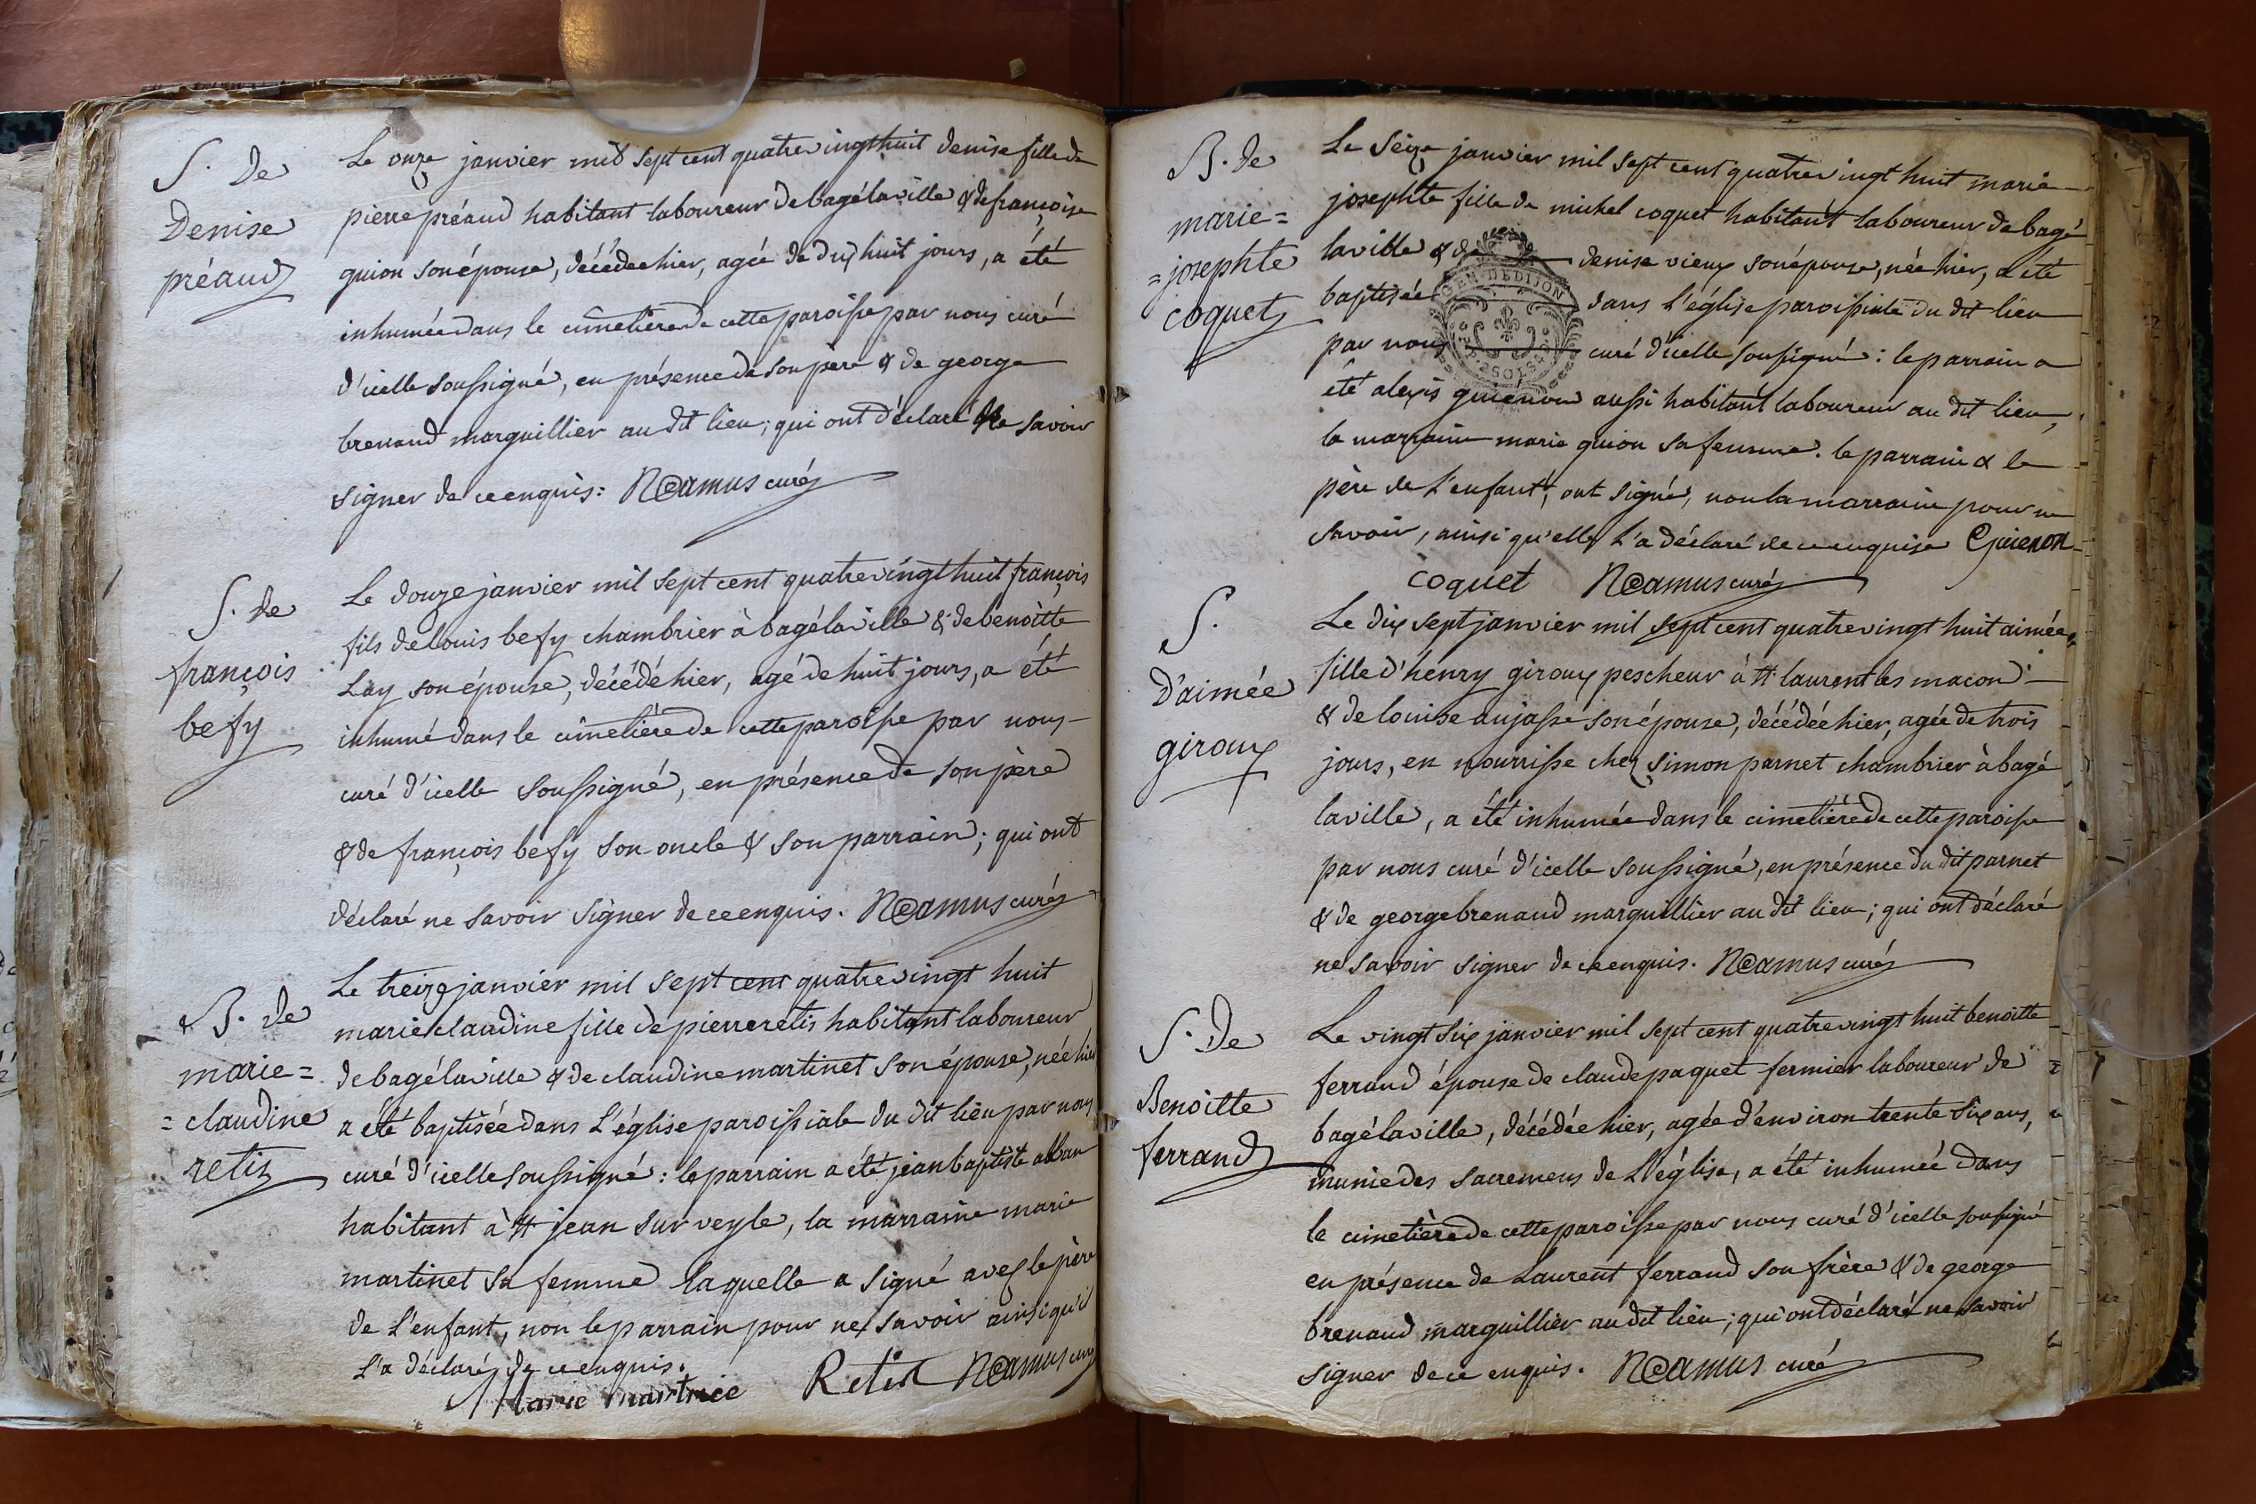 S. de
Denise
préaud
Le onze janvier mil sept cent quatrevingthuit denise fille de
pierre préaud habitant laboureur de bagélaville & de françoise
guion son épouse, décédée hier, agée de dix huit jours, a été
inhumée dans le cimetière de cette paroisse par nous curé
d'icelle soussigné, en présence de son père & de george
brenaud marguillier au dit lieu; qui ont déclaré ne savoir
signer de ce enquis: Camus curé
S. de
françois
befy
Le douze janvier mil sept cent quatrevingthuit françois
fils de louis befy chambrier à bagélaville & de benoitte
Lay son épouse, décédé hier, agé de huit jours, a été
inhumé dans le cimetière de cette paroisse par nous
curé d'icelle soussigné, en présence de son père
& de françois befy son oncle & son parrain; qui ont
déclaré ne savoir signer de ce enquis. Camus curé
B. de
marie=
=claudine
retis
Le treize janvier mil sept cent quatrevingt huit
marie claudine fille de pierre retis habitant laboureur
de bagélaville & de claudine martinet son épouse, née hier
a été baptisée dans L'église paroissiale du dit lieu par nous
curé d'icelle soussigné: le parrain a été jean baptiste alban
habitant à st jean sur veyle, la marraine marie
martinet sa femme laquelle a signé avec le père
de L'enfant, non le parrain pour ne savoir ainsi qu'il
L'a déclaré de ce enquis.
Marie Camus curé
B. de
marie=
=josephte
coquet
Le seize janvier mil sept cent quatrevingt huit marie
josephte fille de michel coquet habitant laboureur de bagé
laville & de denise vieux son épouse, née hier, a été
baptisée dans L'église paroissiale du dit lieu
par nous curé d'icelle soussigné: le parrain a
été alexis guienon aussi habitant laboureur au dit lieu,
la marraine marie guion sa femme. le parrain & le
père de L'enfant, ont signé, non la marraine pour ne
savoir, ainsi qu'elle L'a déclaré de ce enquise Guienon
coquet Camus curé
GEN. DE DIJON
S.
D'aimée
giroux
Le dix sept janvier mil sept cent quatrevingt huit aimée
fille d'henry giroux pescheur à st laurent les macon
& de louise aujasse son épouse, décédée hier, agée de trois
jours, en nourrisse chez simon parnet chambrier à bagé
laville, a été inhumée dans le cimetière de cette paroisse
par nous curé d'icelle soussigné, en présence du dit parnet
& de george brenaud marguillier au dit lieu; qui ont déclaré
ne savoir signer de ce enquis. Camus curé
S. de
Benoitte
ferrand
Le vingt six janvier mil sept cent quatrevingt huit benoitte
ferrand épouse de claude paquet fermier laboureur de
bagélaville, décédée hier, agée d'environ trente six ans,
munie des sacremens de L'église, a été inhumée dans
le cimetière de cette paroisse par nous curé d'icelle soussigné
en présence de Laurent ferrand son frère & de george
brenaud marguillier au dit lieu; qui ont déclaré ne savoir
signer de ce enquis. Camus curé